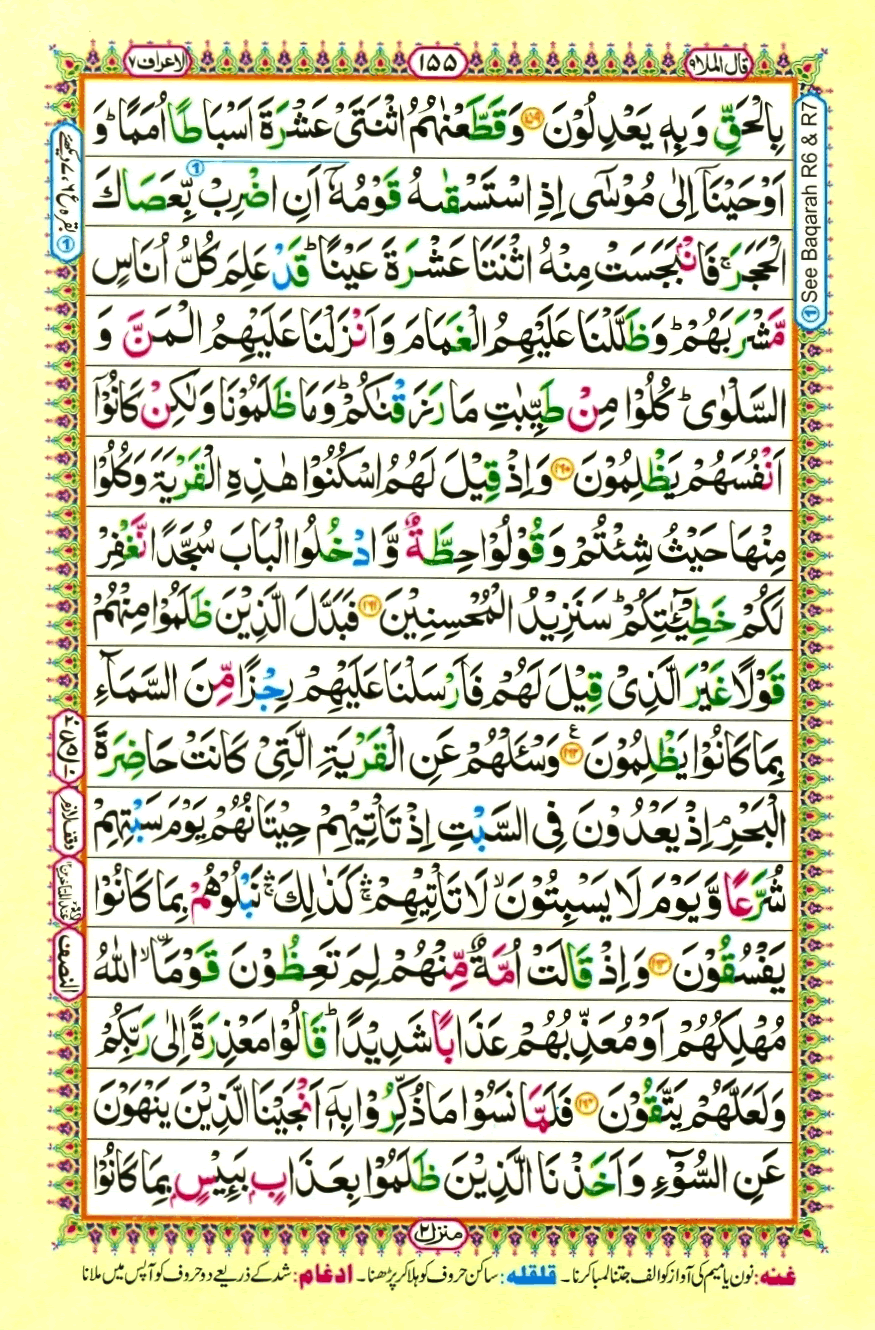 قال الملا ۹
۱۵۵
الاعراف ۷
بِالْحَقِّ وَبِهٖ يَعْدِلُوْنَ ۝۱۵۹ وَقَطَّعْنٰهُمُ اثْنَتَىْ عَشْرَةَ اَسْبَاطًا اُمَمًا ؕ وَ
اَوْحَيْنَاۤ اِلٰى مُوْسٰٓى اِذِ اسْتَسْقٰىهُ قَوْمُهٗۤ اَنِ اضْرِبْ بِّعَصَاكَ
الْحَجَرَ ۚ فَانْۢبَجَسَتْ مِنْهُ اثْنَتَا عَشْرَةَ عَيْنًا ؕ قَدْ عَلِمَ كُلُّ اُنَاسٍ
مَّشْرَبَهُمْ ؕ وَظَلَّلْنَا عَلَيْهِمُ الْغَمَامَ وَاَنْزَلْنَا عَلَيْهِمُ الْمَنَّ وَ
السَّلْوٰى ؕ كُلُوْا مِنْ طَيِّبٰتِ مَا رَزَقْنٰكُمْ ؕ وَمَا ظَلَمُوْنَا وَلٰكِنْ كَانُوْۤا
اَنْفُسَهُمْ يَظْلِمُوْنَ ۝۱۶۰ وَاِذْ قِيْلَ لَهُمُ اسْكُنُوْا هٰذِهِ الْقَرْيَةَ وَكُلُوْا
مِنْهَا حَيْثُ شِئْتُمْ وَقُوْلُوْا حِطَّةٌ وَّادْخُلُوا الْبَابَ سُجَّدًا نَّغْفِرْ
لَكُمْ خَطِيْٓـٰٔتِكُمْ ؕ سَنَزِيْدُ الْمُحْسِنِيْنَ ۝۱۶۱ فَبَدَّلَ الَّذِيْنَ ظَلَمُوْا مِنْهُمْ
قَوْلًا غَيْرَ الَّذِىْ قِيْلَ لَهُمْ فَاَرْسَلْنَا عَلَيْهِمْ رِجْزًا مِّنَ السَّمَآءِ
بِمَا كَانُوْا يَظْلِمُوْنَ ۝۱۶۲ ع وَسْـَٔلْهُمْ عَنِ الْقَرْيَةِ الَّتِىْ كَانَتْ حَاضِرَةَ
الْبَحْرِ ۘ اِذْ يَعْدُوْنَ فِى السَّبْتِ اِذْ تَاْتِيْهِمْ حِيْتَانُهُمْ يَوْمَ سَبْتِهِمْ
شُرَّعًا وَّيَوْمَ لَا يَسْبِتُوْنَ ۙ لَا تَاْتِيْهِمْ ۛۚ كَذٰلِكَ ۛۚ نَبْلُوْهُمْ بِمَا كَانُوْا
يَفْسُقُوْنَ ۝۱۶۳ وَاِذْ قَالَتْ اُمَّةٌ مِّنْهُمْ لِمَ تَعِظُوْنَ قَوْمَا ۙ ۨاللّٰهُ
مُهْلِكُهُمْ اَوْ مُعَذِّبُهُمْ عَذَابًا شَدِيْدًا ؕ قَالُوْا مَعْذِرَةً اِلٰى رَبِّكُمْ
وَلَعَلَّهُمْ يَتَّقُوْنَ ۝۱۶۴ فَلَمَّا نَسُوْا مَا ذُكِّرُوْا بِهٖۤ اَنْجَيْنَا الَّذِيْنَ يَنْهَوْنَ
عَنِ السُّوْٓءِ وَاَخَذْنَا الَّذِيْنَ ظَلَمُوْا بِعَذَابٍۭ بَـِٔيْسٍۭ بِمَا كَانُوْا
① See Baqarah R6 & R7
وقف لازم
النصف
منزل ۲
غنه: نون یا میم کی آواز کو الف جتنا لمبا کرنا۔ قلقله: ساکن حروف کو ہلا کر پڑھنا۔ ادغام: شد کے ذریعے دو حروف کو آپس میں ملانا